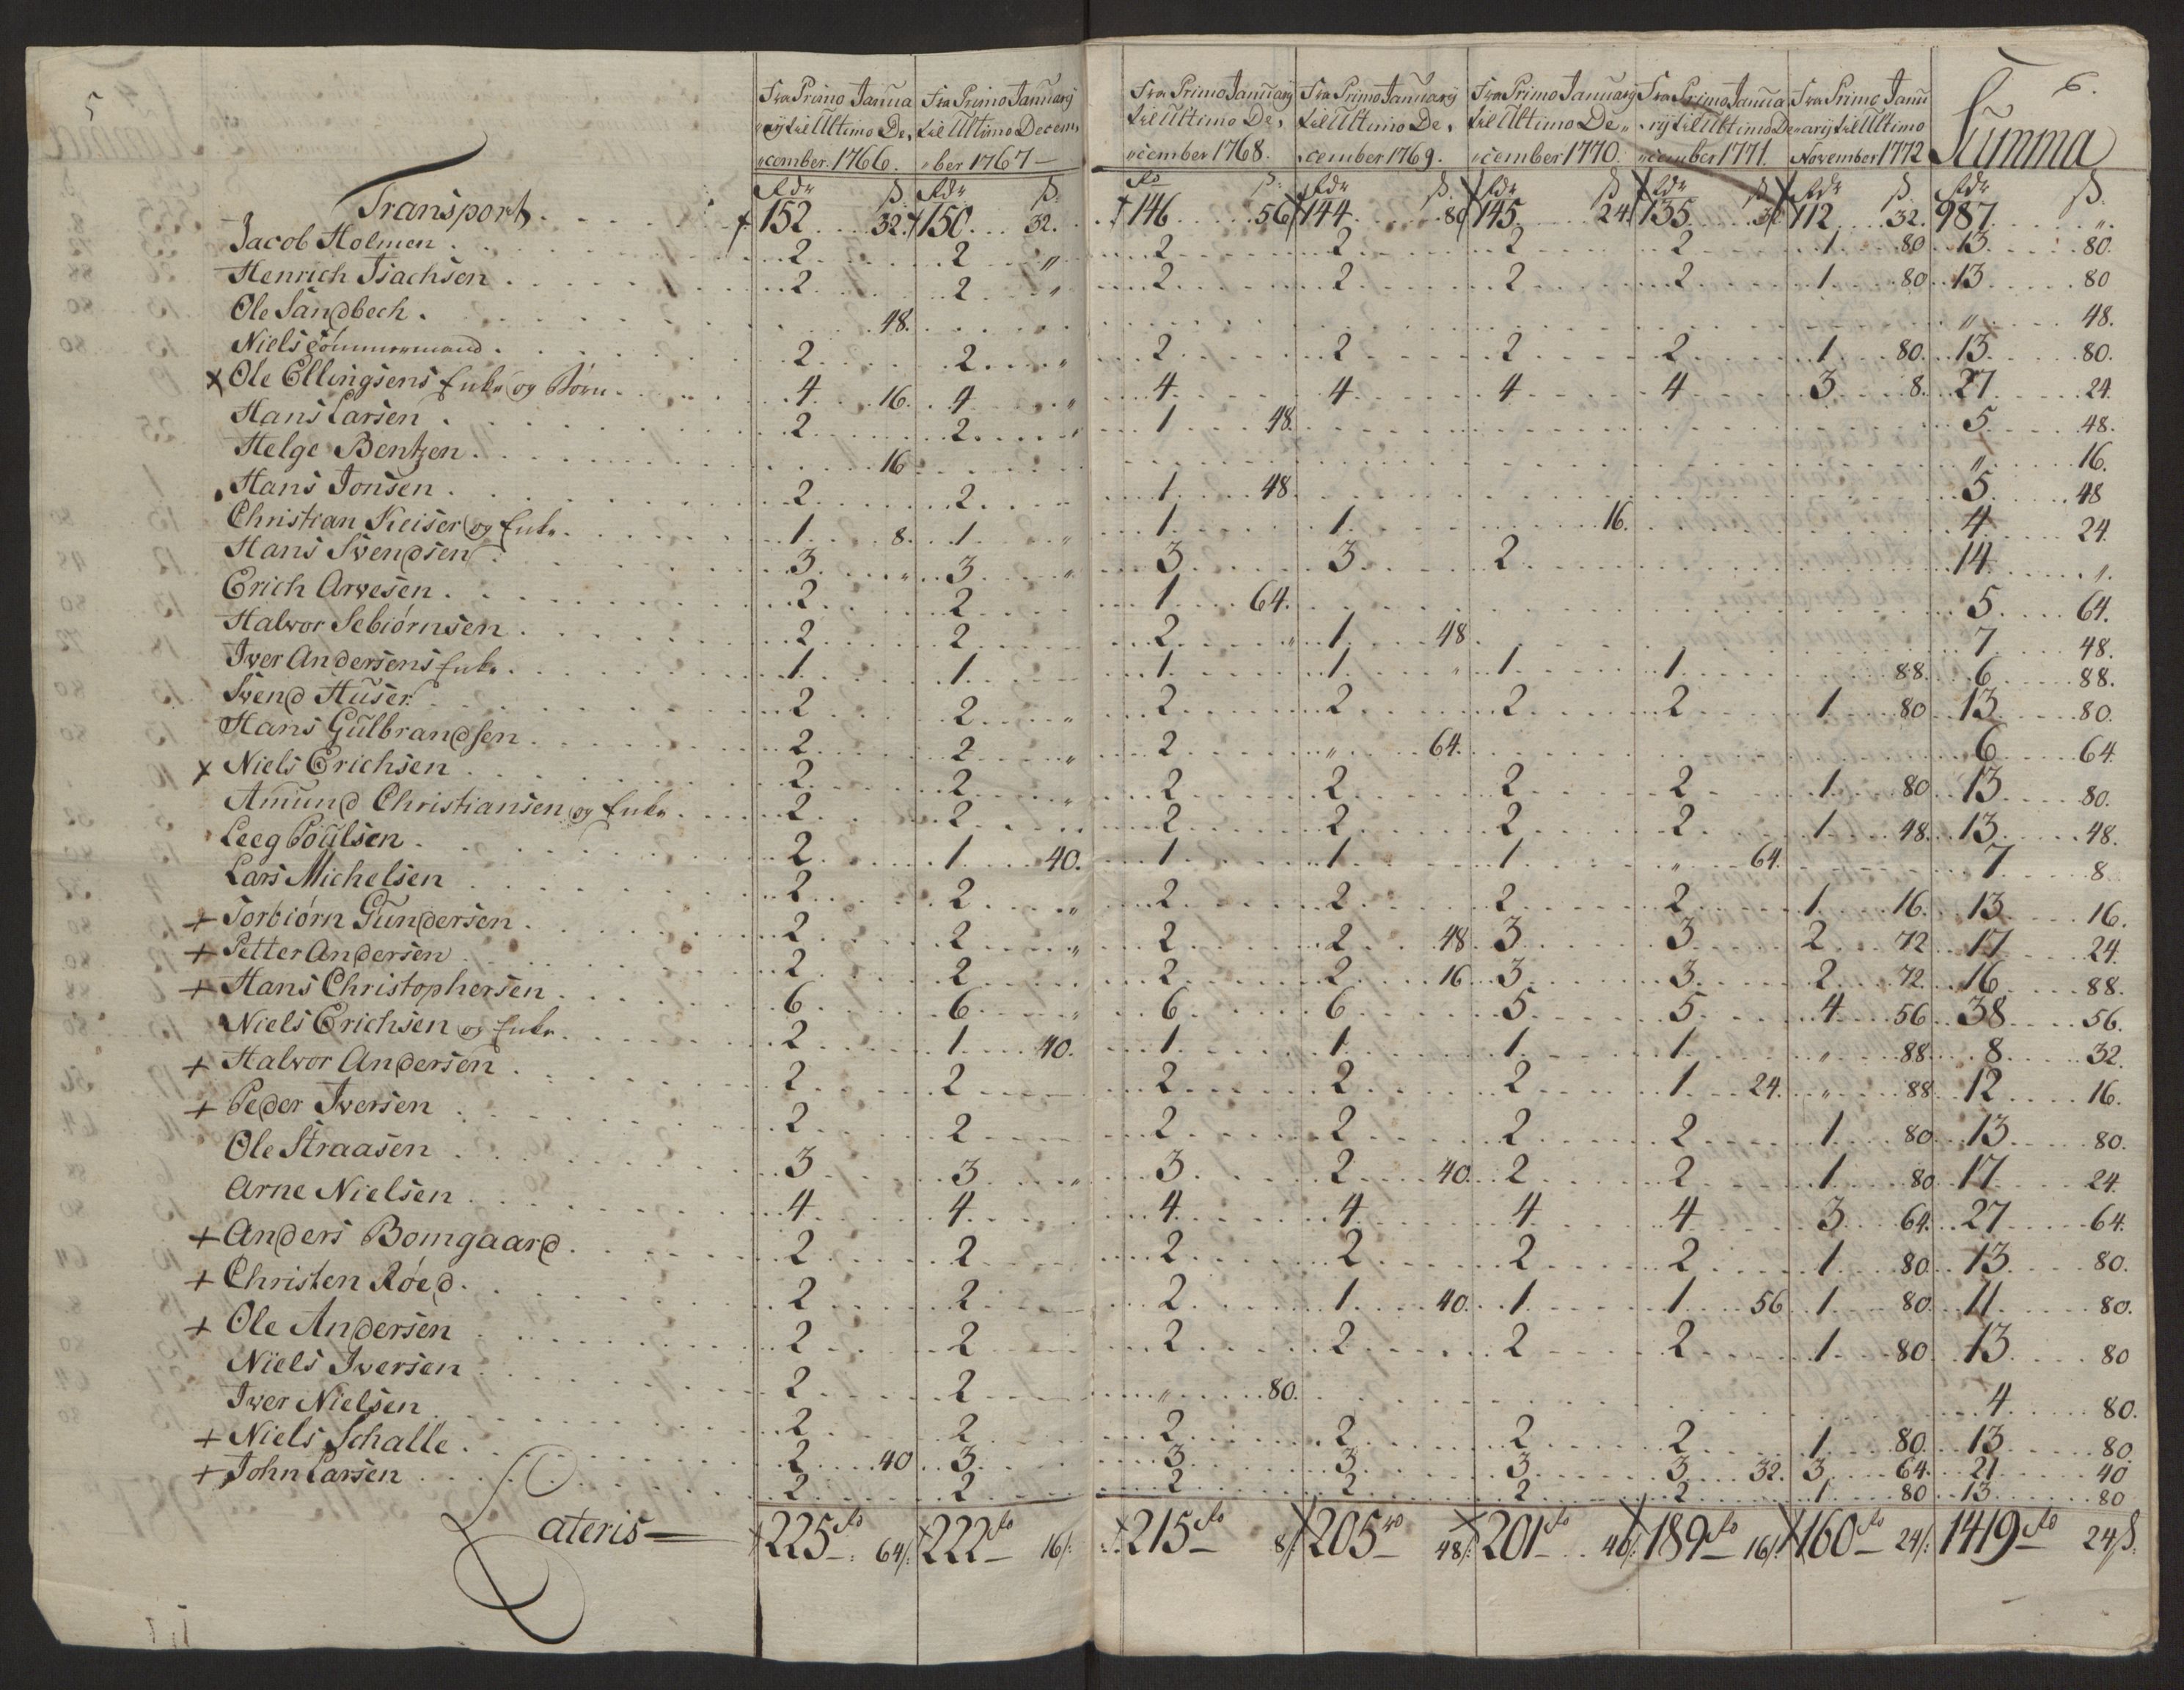 5
6.
Fra Primo Janua Fra Primo Januarij Fra Primo Januarij Fra Primo Januarij Fra Primo Januarij Fra Primo Janua Fra Primo Janu Summa
rij til Ultimo De, til Ultimo Decem, til Ultimo De, til Ultimo De, til Ultimo De„ rij til Ultimo De„ arij til Ultimo
„cember 1766. „ber 1767 „cember 1768. „cember 1769. „cember 1770. „cember 1771. November 1772
Rdr ß. Rdr ß. Rd ß. Rdr ß. Rdr ß Rdr ß Rdr ß. Rdr ß.
Transport 152 32. 150 32. 146 56 144 80 145 24 135 112 32. 987 „
Jacob Holmen 2 2 „ 2 2 2 2 1 80 13 80.
Henrich Isachsen 2 2 „ 2 2 2 2 1 80 13 80
Ole Sandbech 48. „ 48.
Niels 2 2 „ 2 2 2 2 1 80. 13 80.
x Ole Ellingsens Enke og Børn 4 16. 4 „ 4 4 4 4 3 8. 27 24.
Hans Larsen 2 2 „ 1 48. 5 48.
Helge Bentzen 16 „ 16.
Hans Jonsen 2 2 1 48. 5 48
Christian Keiser og Enke 1 8. 1 „ 1 1 16. 4 24.
Hans Svendsen 3 „ 3 „ 3 3 2 14 „
Erich Arvesen 2 2 1 64. 5 64.
Halvor Sebiørnsen 2 2 2 „ 1 48 7 48.
Iver Andersens Enke 1 1 1 1 „ 1 1 88. 6 88.
Svend Huser 2 2 „ 2 2 2 2 1 80 13 80.
Hans Gulbrandsen 2 2 „ 2 „ 64. 6 64.
x Niels Erichsen 2 2 „ 2 2 2 2 1 80 13 80.
Amund Christiansen og Enke 2 2 2 2 2 2 1 48. 13 48.
Leeg Poulsen 2 1 40. 1 1 1 „ 64. 7 8
Lars Michelsen 2 2 „ 2 2 2 2 1 16. 13 16.
+ Torbiørn Gundersen 2 2 „ 2 2 48 3 3 2 72 17 24.
+ Petter Andersen 2 2 2 2 16 3 3 2 72. 16 88.
+ Hans Christophersen 6 6 „ 6 6 5 5 4 56 38 56.
Niels Erichsen og Enke 2 1 40. 1 1 1 1 „ 88. 8 32.
+ Halvor Andersen 2 2 2 2 2 1 24. „ 88 12 16.
+ Peder Iversen 2 2 2 2 2 2 1 80. 13 80.
Ole Straasen 3 3 „ 3 2 40. 2 2 1 80. 17 24
Arne Nielsen 4 4 4 4 4 4 3 64. 27 64.
+ Anders Bomgaard 2 2 2 2 2 2 1 80. 13 80.
+ Christen Røed 2 2 2 1 40. 1 1 56 1 80. 11 80.
+ Ole Andersen 2 2 2 2 2 2 1 80. 13 80
Niels Iversen 2 2 „ 80. 4 80.
Iver Nielsen 2 2 2 2 2 2 1 80. 13 80.
+ Niels Schalle 2 40 3 3 3 3 3 32. 3 64. 21 40
+ John Larsen 2 2 2 2 2 2 1 80 13 80
Lateris 225 rd 64/: 222 rd 16/: 215 rd 8/: 205 rd 48/: 201 rd 189 rd 16/: 160 rd 24/: 1419 rd 24 ß.